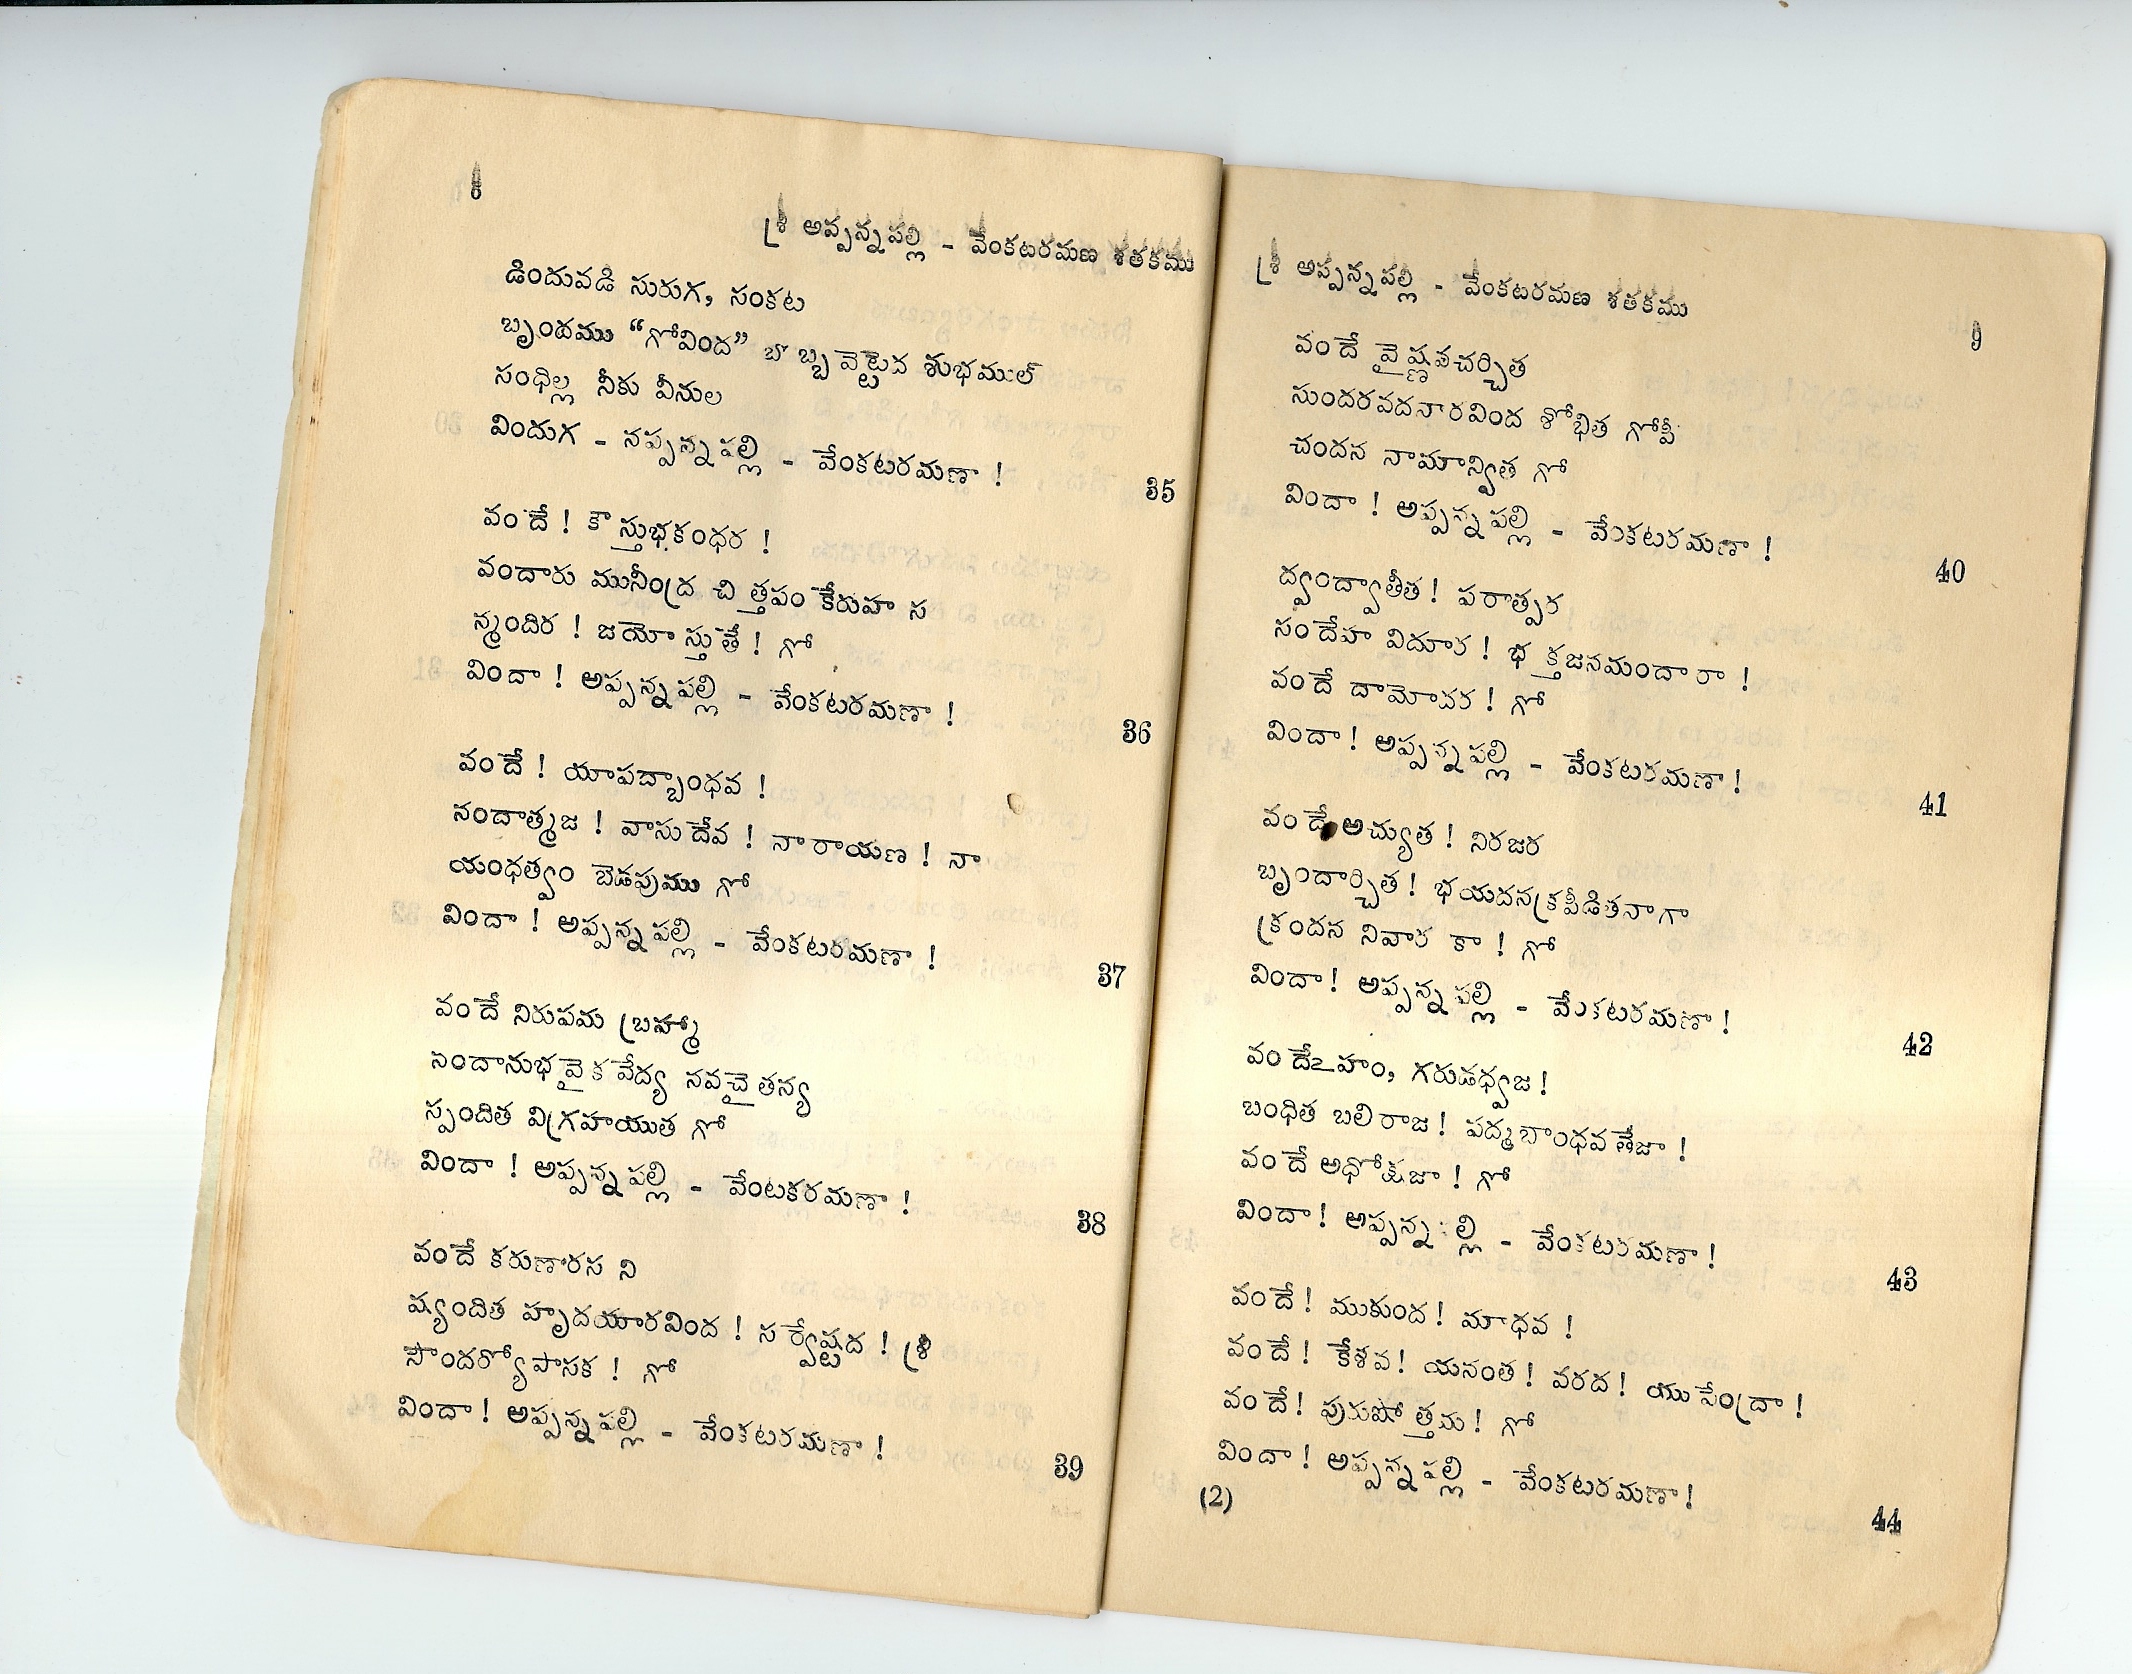 8
శ్రీ అప్పన్నపల్లి - వేంకట్రరమణ శతకము
డిందువడి సురుగ, సంకట
బృందము “గోవింద” బొబ్బవెట్టెద శుభముల్
సంధిల్ల నీకు వీనుల
విందుగ - నప్పన్నపల్లి - వేంకటరమణా !
35
వందే ! కౌస్తుభకంధర !
వందారు మునీంద్ర చిత్తపంకేరుహ స
న్మందిర ! జయోస్తుతే ! గో
విందా ! అప్పన్నపల్లి - వేంకటరమణా !
36
వందే ! యాపద్బాంధవ !
నందాత్మజ ! వాసుదేవ ! నారాయణ ! నా
యంధత్వం బెడపుము గో
విందా ! అప్పన్నపల్లి - వేంకటరమణా !
37
వందే నిరుపమ బ్రహ్మా
నందానుభవైకవేద్య నవచైతన్య
స్పందిత విగ్రహయుత గో
విందా ! అప్పన్నపల్లి - వేంటకరమణా !
38
వందే కరుణారస ని
ష్యందిత హృదయారవింద ! సర్వేష్టద ! శ్రీ
సౌందర్యోపాసక ! గో
విందా ! అప్పన్నపల్లి - వేంకటరమణా !
39
శ్రీ అప్పన్నపల్లి - వేంకటరమణ శతకము
9
వందే వైష్ణవచర్చిత
సుందరవదనారవింద శోభిత గోపీ
చందన నామాన్విత గో
విందా ! అప్పన్నపల్లి - వేంకటరమణా !
40
ద్వంద్వాతీత ! పరాత్పర
సందేహ విదూర ! భక్తజనమందారా !
వందే దామోదర ! గో
విందా ! అప్పన్నపల్లి - వేంకటరమణా !
41
వందే అచ్యుత ! నిరజర
బృందార్చిత ! భయదనక్రపీడితనాగా
క్రందన నివార కా ! గో
విందా ! అప్పన్నపల్లి - వేంకటరమణా !
42
వందేఽహం, గరుడధ్వజ !
బంధిత బలిరాజ ! పద్మబాంధవతేజా !
వందే అధోక్షజా ! గో
విందా ! అప్పన్న ల్లి - వేంకటరమణా !
43
వందే ! ముకుంద ! మాధవ !
వందే ! కేశవ ! యనంత ! వరద ! యుపేంద్రా !
వందే ! పురుషోత్తమ ! గో
విందా ! అప్పన్నపల్లి - వేంకటరమణా !
44
(2)